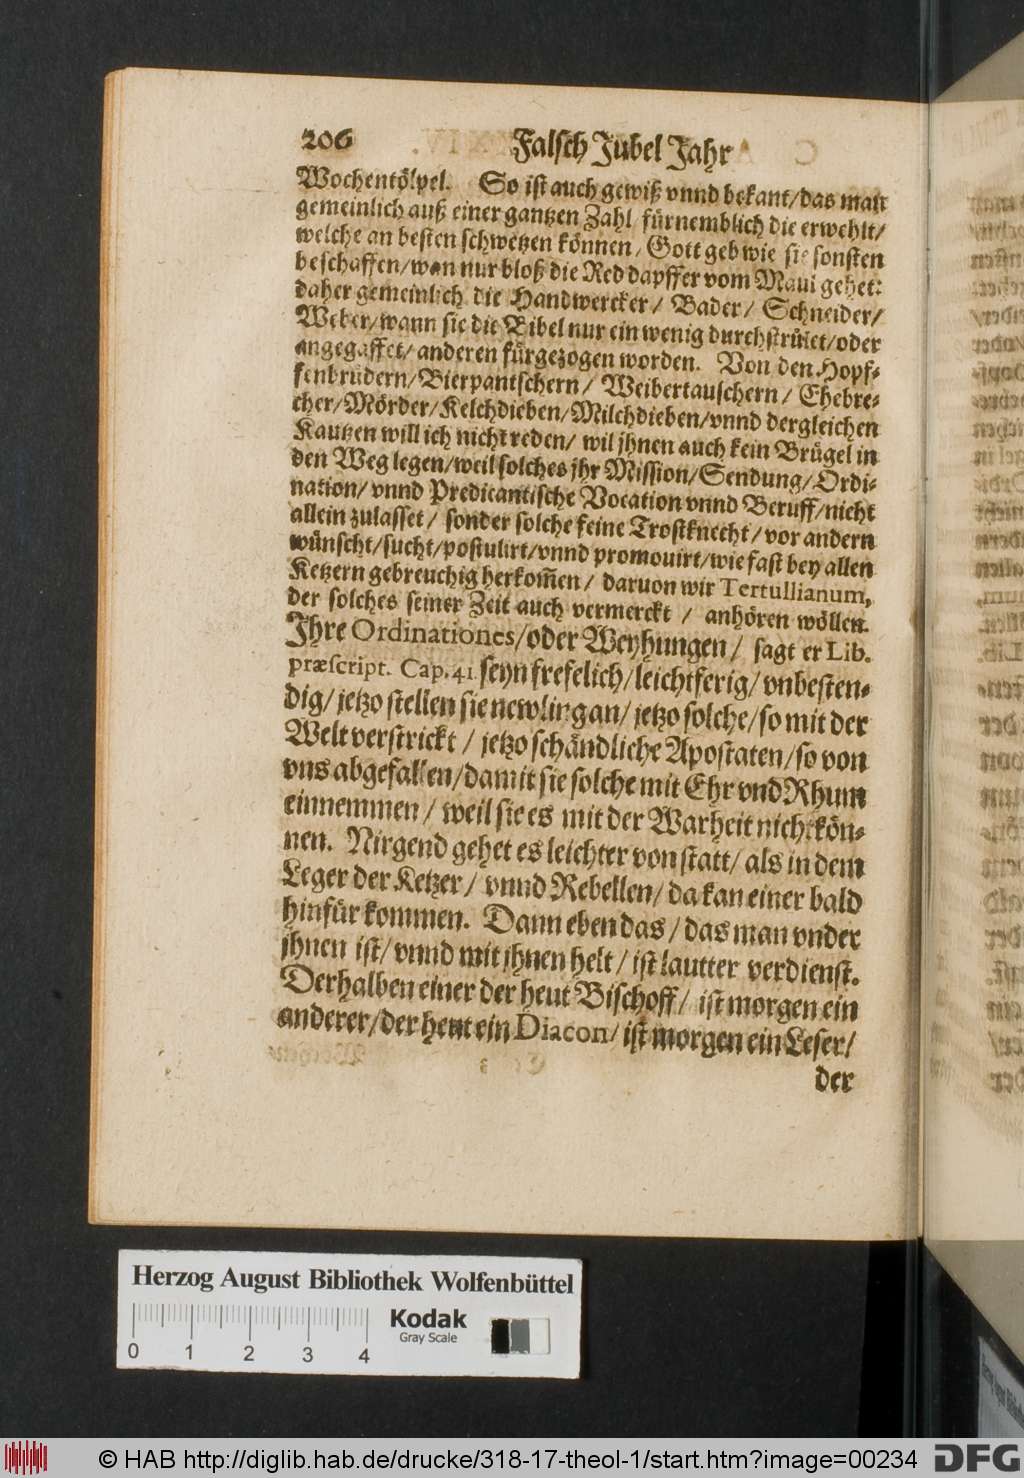 206 Falsch Jubel Jahr
Wochentölpel. So ist auch gewiß vnnd bekant/das man
gemeinlich auß einer gantzen Zahl fürnemblich die erwehlt/
welche an besten schwetzen können/Gott geb wie sie sonsten
beschaffen/wan nur bloß die Red dapffer vom Maul gehet:
daher gemeinlich die Handwercker/ Bader/ Schneider/
Weber/wann sie die Bibel nur ein wenig durchstrület/oder
angegaffet/ anderen fürgezogen worden. Von den Hopf-
fenbrüdern/Bierpantschern/ Weibertauschern/ Ehebre-
cher/Mörder/Kelchdieben/Milchdieben/vnnd dergleichen
Kautzen will ich nicht reden/ wil jhnen auch kein Brügel in
den Weg legen/weil solches jhr Mission/Sendung/Ordi-
nation/ vnnd Predicantische Vocation vnnd Beruff/nicht
allein zulasset/ sonder solche feine Trostknecht/vor andern
wünscht/sucht/postulirt/vnnd promouirt/wie fast bey allen
Ketzern gebreuchig herkom̃en/ daruon wir Tertullianum,
der solches seiner Zeit auch vermerckt/ anhören wöllen.
Jhre Ordinationes/oder Weyhungen/ sagt er Lib.
præscript. Cap. 41 seyn frefelich/leichtferig/vnbesten-
dig/jetzo stellen sie newling an/jetzo solche/so mit der
Welt verstrickt/ jetzo schändliche Apostaten/so von
vns abgefallen/damit sie solche mit Ehr vnd Rhum
einnemmen/ weil sie es mit der Warheit nicht kön-
nen. Nirgend gehet es leichter von statt/ als in dem
Leger der Ketzer/ vnnd Rebellen/da kan einer bald
hinfür kommen. Dann eben das/das man vnder
jhnen ist/vnnd mit jhnen helt/ist lautter verdienst.
Derhalben einer der heut Bischoff/ ist morgen ein
anderer/der heut ein Diacon/ist morgen ein Leser/
der
Herzog August Bibliothek Wolfenbüttel
Kodak
Gray Scale
0 1 2 3 4
© HAB http://diglib.hab.de/drucke/318-17-theol-1/start.htm?image=00234
DFG